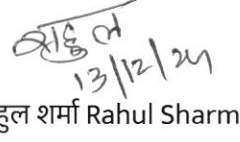 राहुल
13/12/24
हुल शर्मा Rahul Sharm